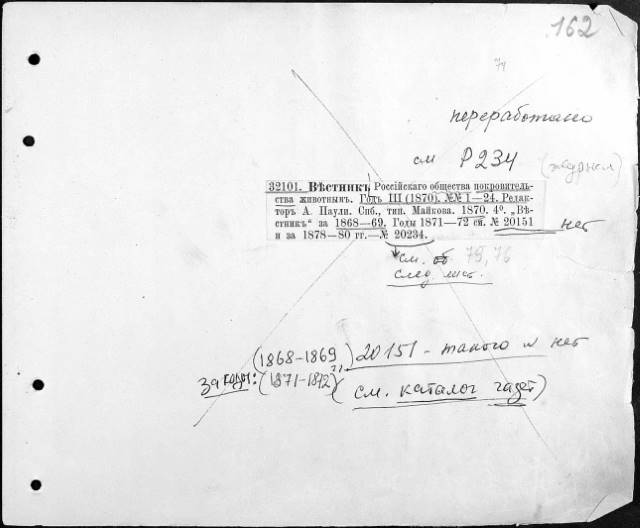 162
74
переработано
см Р234 (журнал)
32101. Вѣстникъ Россійскаго общества покровитель-
ства животнымъ. Годъ III (1870). №№ I—24. Редак-
торъ А. Паули. Спб., тип. Майкова. 1870. 4⁰. „Вѣ-
стникъ“ за 1868—69. Годы 1871—72 см. № 20151
и за 1878—80 гг.—№ 20234.
нет
см. об 75, 76
след лист.
(1868-1869) 20151 - такого № нет
за годы: (1871-1872) (см. каталог газет)